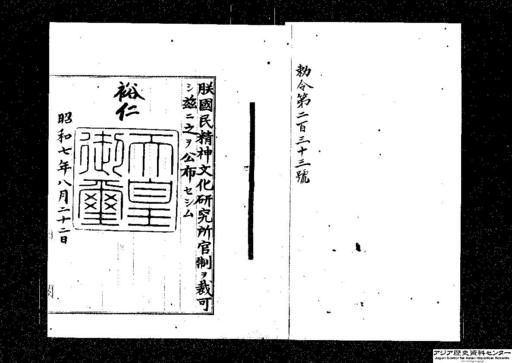 勅令第二百三十三號
朕國民精神文化研究所官制ヲ裁可
シ茲ニ之ヲ公布セシム
裕仁
天皇
御璽
昭和七年八月二十二日
アジア歴史資料センター
Japan Center for Asian Historical Records